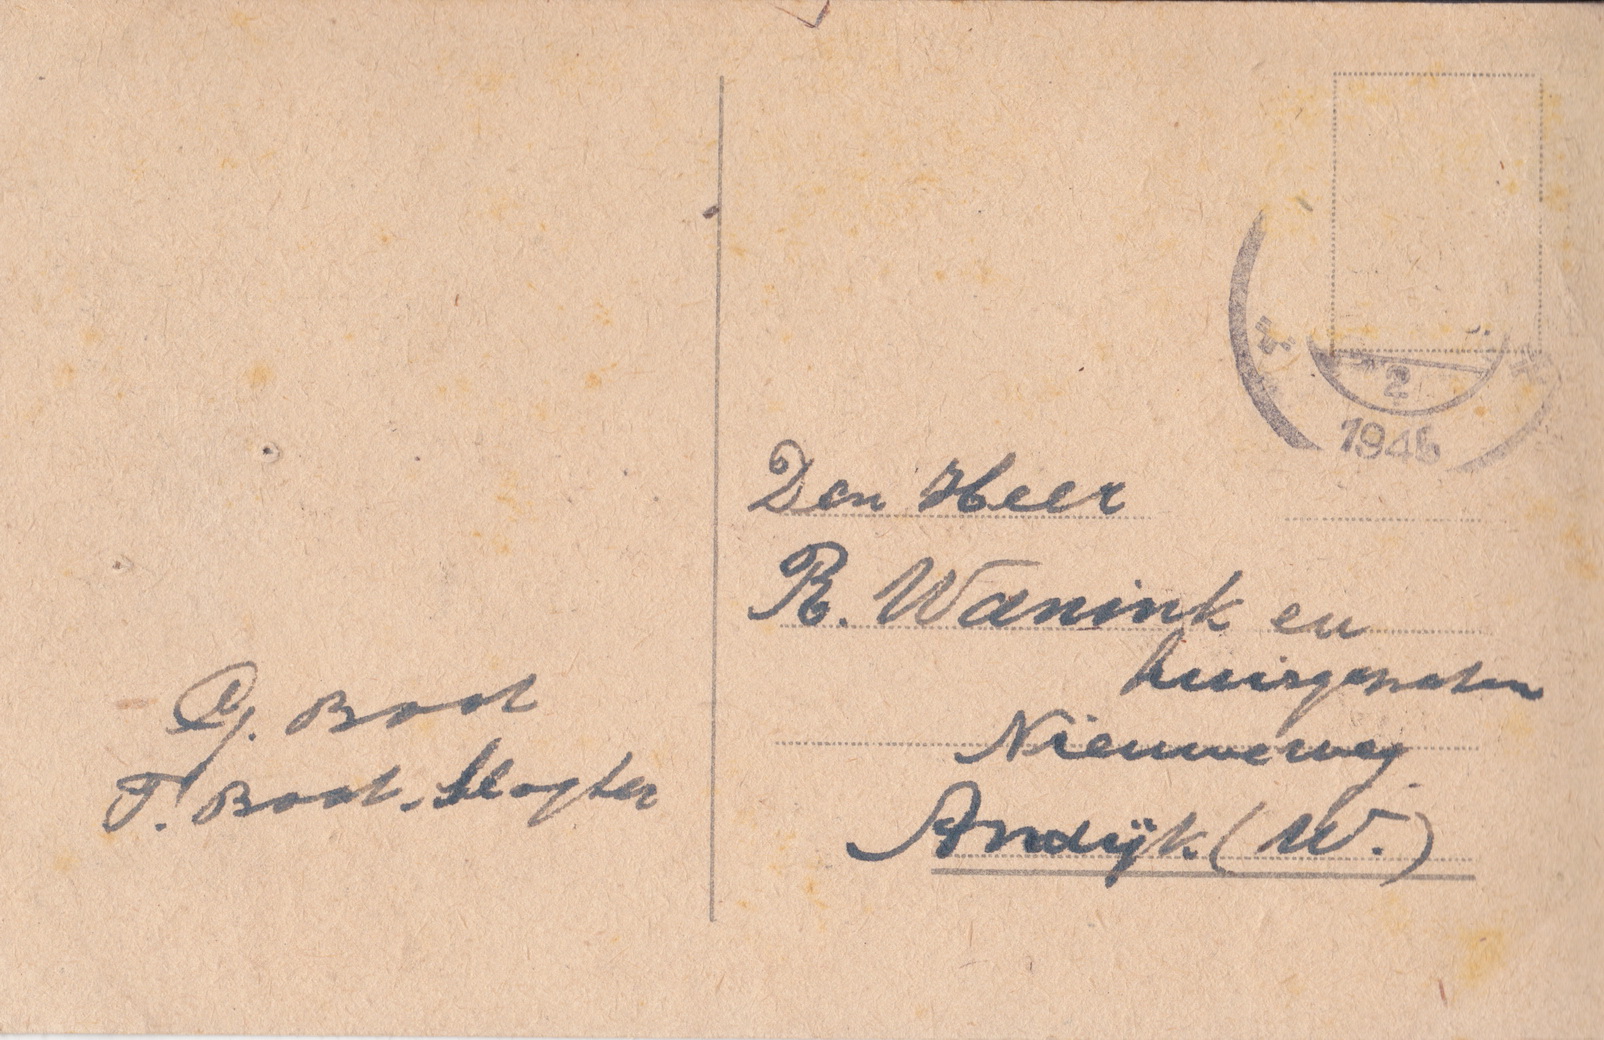 G. Boot
F. Boot-Slagter
2
1946
Den Heer
R. Wanink en
huisgenooten
Nieuweweg
Andijk. (W.)